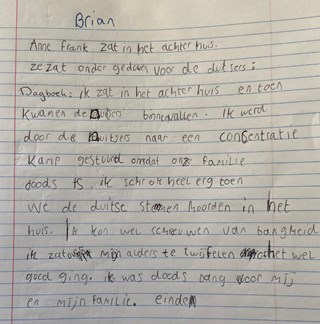 Brian
Anne frank zat in het achter huis.
ze zat onder gedoken voor de duitsers:
Dagboek: ik zat in het achter huis en toen
kwamen de Duitsers binnevallen. ik werd
door de Duitzers naar een consentratie
Kamp gestuurd omdat onze familie
Joods is. ik schrok heel erg toen
we de duitse stemen hoorden in het
huis. Ik kon wel schreeuwen van bangheid
ik zat mijn auders te twijfelen of het wel
goed ging. ik was doods bang voor mij
en mijn familie. einde